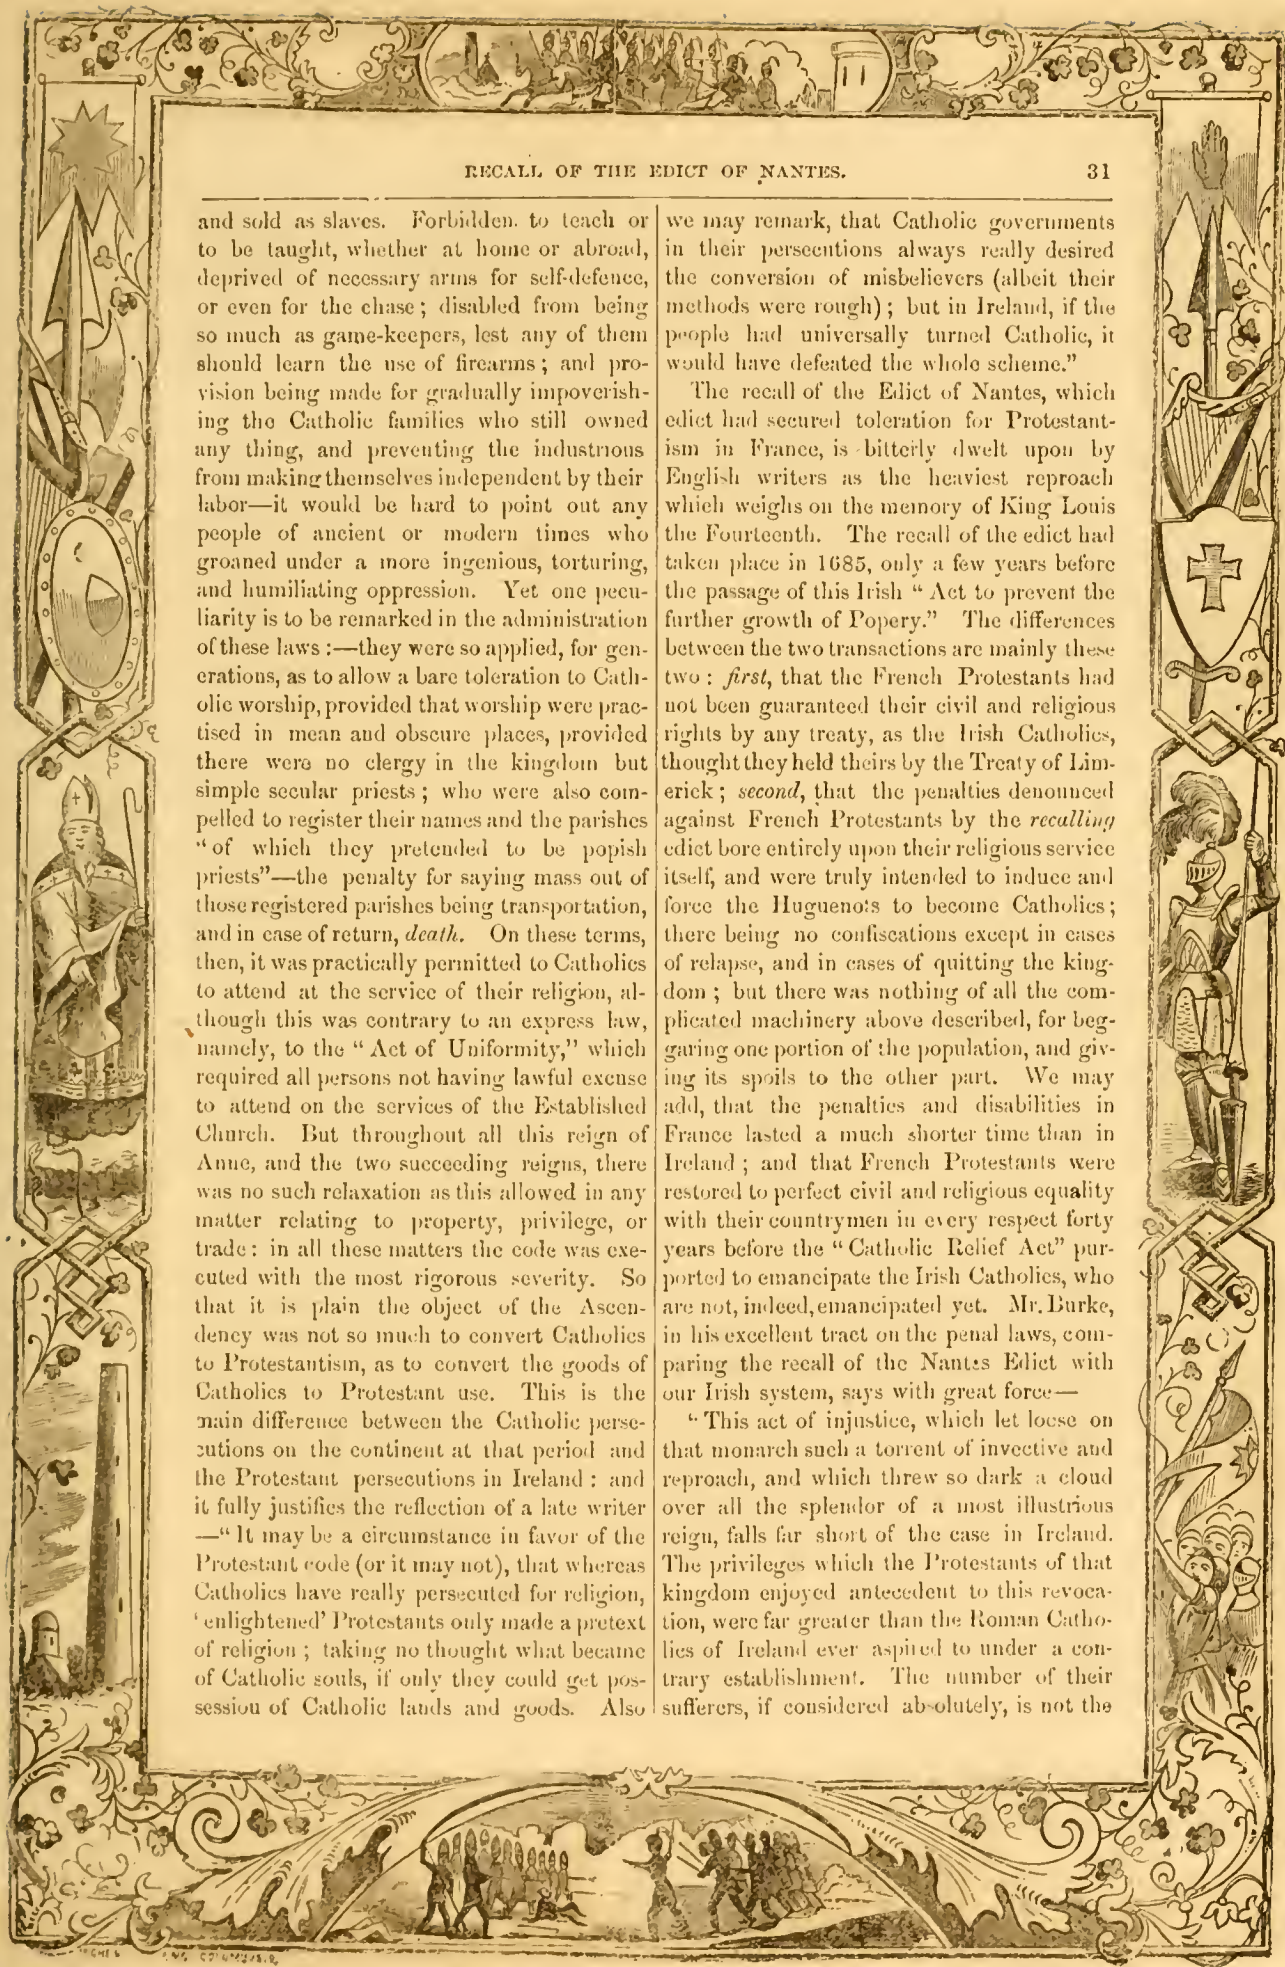 RECALL OF THE EDICT OF NANTES. 31
and sold as slaves. Forbidden. to teach or
to be taught, whether at home or abroad,
deprived of necessary arms for self-defence,
or even for the chase; disabled from being
so much as game-keepers, lest any of them
should learn the use of firearms; and pro-
vision being made for gradually impoverish-
ing the Catholic families who still owned
any thing, and preventing the industrious
from making themselves independent by their
labor—it would be hard to point out any
people of ancient or modern times who
groaned under a more ingenious, torturing,
and humiliating oppression. Yet one pecu-
liarity is to be remarked in the administration
of these laws:—they were so applied, for gen-
erations, as to allow a bare toleration to Cath-
olic worship, provided that worship were prac-
tised in mean and obscure places, provided
there were no clergy in the kingdom but
simple secular priests; who were also com-
pelled to register their names and the parishes
"of which they pretended to be popish
priests"—the penalty for saying mass out of
those registered parishes being transportation,
and in case of return, death. On these terms,
then, it was practically permitted to Catholics
to attend at the service of their religion, al-
though this was contrary to an express law,
namely, to the "Act of Uniformity," which
required all persons not having lawful excuse
to attend on the services of the Established
Church. But throughout all this reign of
Anne, and the two succeeding reigns, there
was no such relaxation as this allowed in any
matter relating to property, privilege, or
trade: in all these matters the code was exe-
cuted with the most rigorous severity. So
that it is plain the object of the Ascen-
dency was not so much to convert Catholics
to Protestantism, as to convert the goods of
Catholics to Protestant use. This is the
main difference between the Catholic perse-
cutions on the continent at that period and
the Protestant persecutions in Ireland: and
it fully justifies the reflection of a late writer
—"It may be a circumstance in favor of the
Protestant code (or it may not), that whereas
Catholics have really persecuted for religion,
'enlightened' Protestants only made a pretext
of religion; taking no thought what became
of Catholic souls, if only they could get pos-
session of Catholic lands and goods. Also
we may remark, that Catholic governments
in their persecutions always really desired
the conversion of misbelievers (albeit their
methods were rough); but in Ireland, if the
people had universally turned Catholic, it
would have defeated the whole scheme."
The recall of the Edict of Nantes, which
edict had secured toleration for Protestant-
ism in France, is bitterly dwelt upon by
English writers as the heaviest reproach
which weighs on the memory of King Louis
the Fourteenth. The recall of the edict had
taken place in 1685, only a few years before
the passage of this Irish "Act to prevent the
further growth of Popery." The differences
between the two transactions are mainly these
two: first, that the French Protestants had
not been guaranteed their civil and religious
rights by any treaty, as the Irish Catholics,
thought they held theirs by the Treaty of Lim-
erick; second, that the penalties denounced
against French Protestants by the recalling
edict bore entirely upon their religious service
itself, and were truly intended to induce and
force the Huguenots to become Catholics;
there being no confiscations except in cases
of relapse, and in cases of quitting the king-
dom; but there was nothing of all the com-
plicated machinery above described, for beg-
garing one portion of the population, and giv-
ing its spoils to the other part. We may
add, that the penalties and disabilities in
France lasted a much shorter time than in
Ireland; and that French Protestants were
restored to perfect civil and religious equality
with their countrymen in every respect forty
years before the "Catholic Relief Act" pur-
ported to emancipate the Irish Catholics, who
are not, indeed, emancipated yet. Mr. Burke,
in his excellent tract on the penal laws, com-
paring the recall of the Nantes Edict with
our Irish system, says with great force—
"This act of injustice, which let loose on
that monarch such a torrent of invective and
reproach, and which threw so dark a cloud
over all the splendor of a most illustrious
reign, falls far short of the case in Ireland.
The privileges which the Protestants of that
kingdom enjoyed antecedent to this revoca-
tion, were far greater than the Roman Catho-
lics of Ireland ever aspired to under a con-
trary establishment. The number of their
sufferers, if considered absolutely, is not the